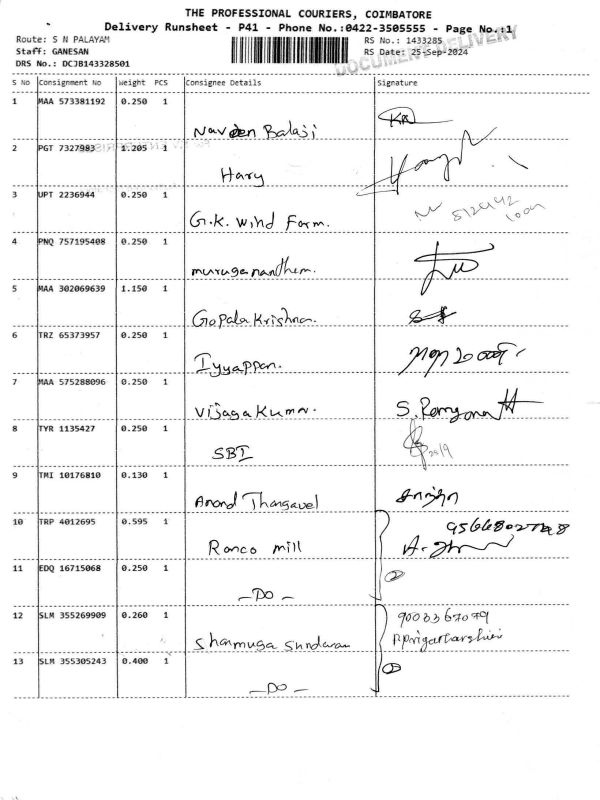 THE PROFESSIONAL COURIERS, COIMBATORE
Delivery Runsheet - P41 - Phone No.:0422-3505555 - Page No.:1
Route: S N PALAYAM
RS No.: 1433285
Staff: GANESAN
RS Date: 25-Sep-2024
DRS No.: DCJB143328501
DOCUMENT DELIVERY
S No Consignment No Weight PCS Consignee Details Signature
1 MAA 573381192 0.250 1
Naveen Balaji
2 PGT 7327983 1.205 1
Hary
3 UPT 2236944 0.250 1
G.K. Wind Farm.
4 PNQ 757195408 0.250 1
muruganandhem.
5 MAA 302069639 1.150 1
Gopala Krishnan.
6 TRZ 65373957 0.250 1
Iyyappan.
7 MAA 575288096 0.250 1
Vijaya Kumar.
8 TYR 1135427 0.250 1
SBI
9 TMI 10176810 0.130 1
Anand Thangavel
10 TRP 4012695 0.595 1
Ranco mill
11 EDQ 16715068 0.250 1
-DO-
2
12 SLM 355269909 0.260 1
9003367079
Shanmuga Sundaram
13 SLM 355305243 0.400 1
2
-DO-